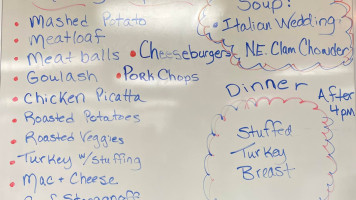 Soup!
• Mashed Potato
• Italian Wedding
• Meatloaf
N.E. Clam Chowder
• Meat balls • Cheeseburgers
• Goulash • Pork Chops
• Chicken Picatta
Dinner After 4pm
• Roasted Potatoes
• Roasted Veggies
Stuffed
Turkey
Breast
• Turkey w/ Stuffing
• Mac + Cheese